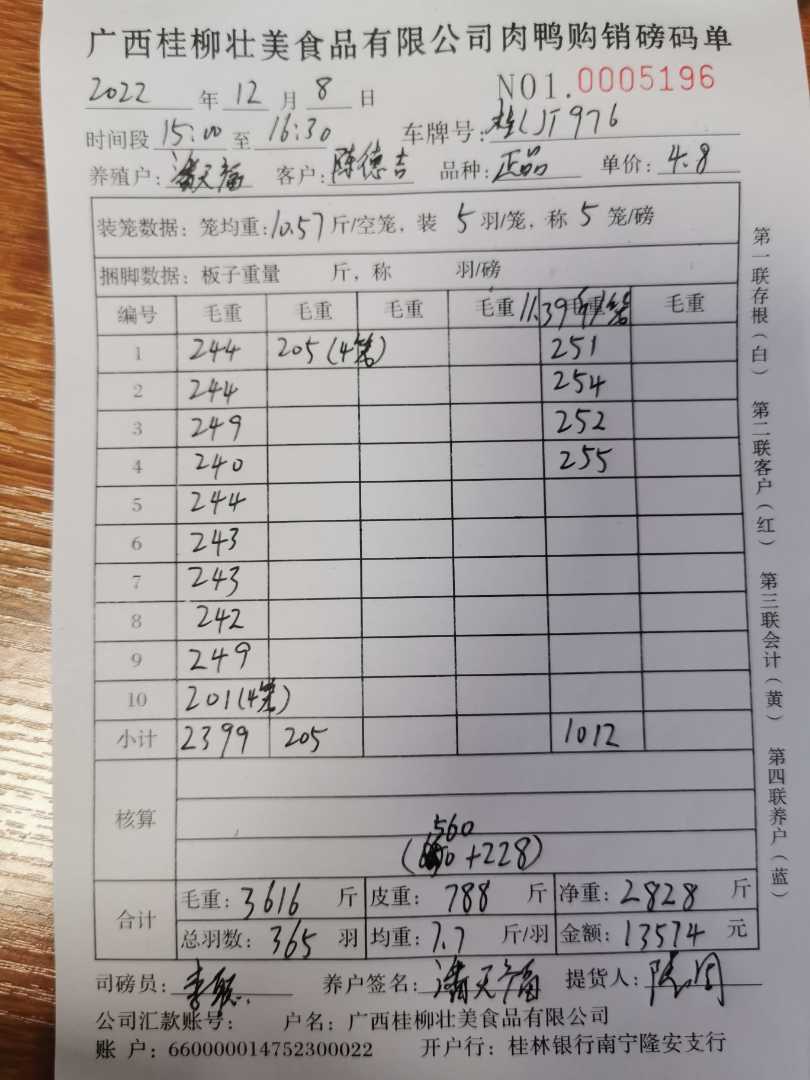 广西桂柳壮美食品有限公司肉鸭购销磅码单
2022 年 12 月 8 日 NO1.0005196
时间段 15:00 至 16:30 车牌号: 桂CJT976
养殖户: 潘天福 客户: 陈德吉 品种: 正品 单价: 4.8
装笼数据: 笼均重: 10.57 斤/空笼, 装 5 羽/笼, 称 5 笼/磅
捆脚数据: 板子重量 斤, 称 羽/磅
编号 毛重 毛重 毛重 毛重 11.39斤/笼 毛重 毛重
1 244 205(4笼) 251
2 244 254
3 249 252
4 240 255
5 244
6 243
7 243
8 242
9 249
10 201(4笼)
小计 2399 205 1012
核算
560
( +228)
合计 毛重: 3616 斤 皮重: 788 斤 净重: 2828 斤
总羽数: 365 羽 均重: 7.7 斤/羽 金额: 13574 元
司磅员: 养户签名: 潘天福 提货人:
公司汇款账号: 户名: 广西桂柳壮美食品有限公司
账 户: 660000014752300022 开户行: 桂林银行南宁隆安支行
第一联存根(白) 第二联客户(红) 第三联会计(黄) 第四联养户(蓝)